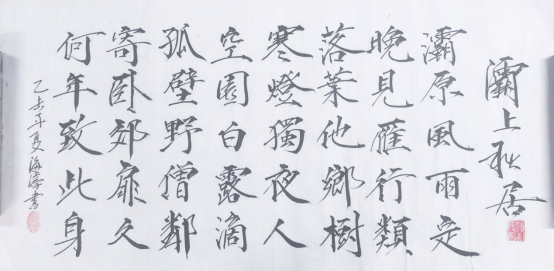 灞上秋居
灞原風雨定
晚見雁行類
落葉他鄉樹
寒燈獨夜人
空園白露滴
孤壁野僧鄰
寄卧郊扉久
何年致此身
乙未年夏海濤書